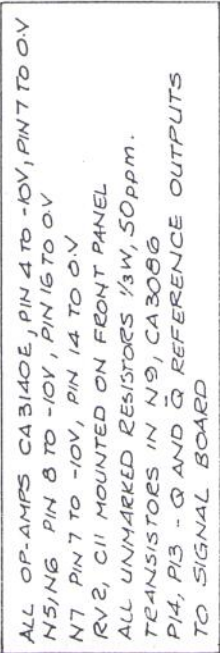 ALL OP-AMPS CA3140E, PIN 4 TO -10V, PIN 7 TO 0.V
N5, N6 PIN 8 TO -10V, PIN 16 TO 0.V
N7 PIN 7 TO -10V, PIN 14 TO 0.V
RV2, C11 MOUNTED ON FRONT PANEL
ALL UNMARKED RESISTORS 1/3W, 50ppm.
TRANSISTORS IN N9, CA3086
P14, P13 - Q AND Q̄ REFERENCE OUTPUTS
TO SIGNAL BOARD